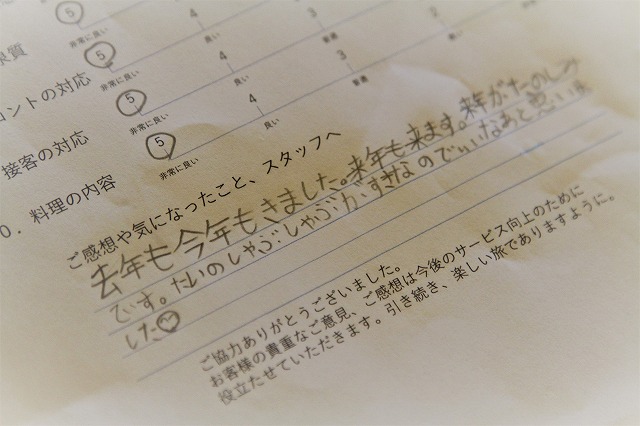 泉質
⑤ 4 3 2
非常に良い 良い 普通 悪い
ロントの対応
⑤ 4 3
非常に良い 良い 普通
接客の対応
⑤ 4
非常に良い 良い
0. 料理の内容
⑤
非常に良い
ご感想や気になったこと、スタッフへ
去年も今年もきました。来年も来ます。来年がたのしみ
です。たいのしゃぶしゃぶがすきなのでいいなあと思いま
した
ご協力ありがとうございました。
お客様の貴重なご意見、ご感想は今後のサービス向上のために
役立たせていただきます。引き続き、楽しい旅でありますように。